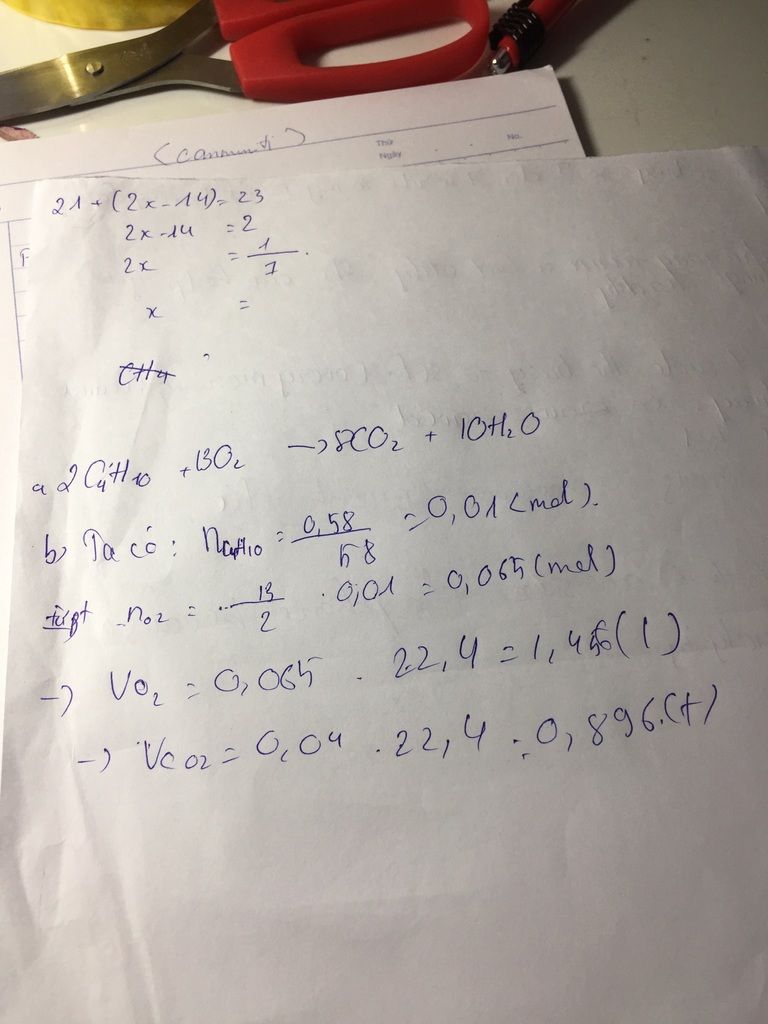 Thứ
Ngày
No.
21 + (2x - 14) = 23
2x - 14 = 2
2x = 1/7.
x =
CH4
a 2C4H10 + 13O2 → 8CO2 + 10H2O
b) Ta có: nC4H10 = 0,58/58 = 0,01 (mol).
nO2 = 13/2 . 0,01 = 0,065 (mol)
→ VO2 = 0,065 . 22,4 = 1,456 (l)
→ VCO2 = 0,04 . 22,4 = 0,896.(l)